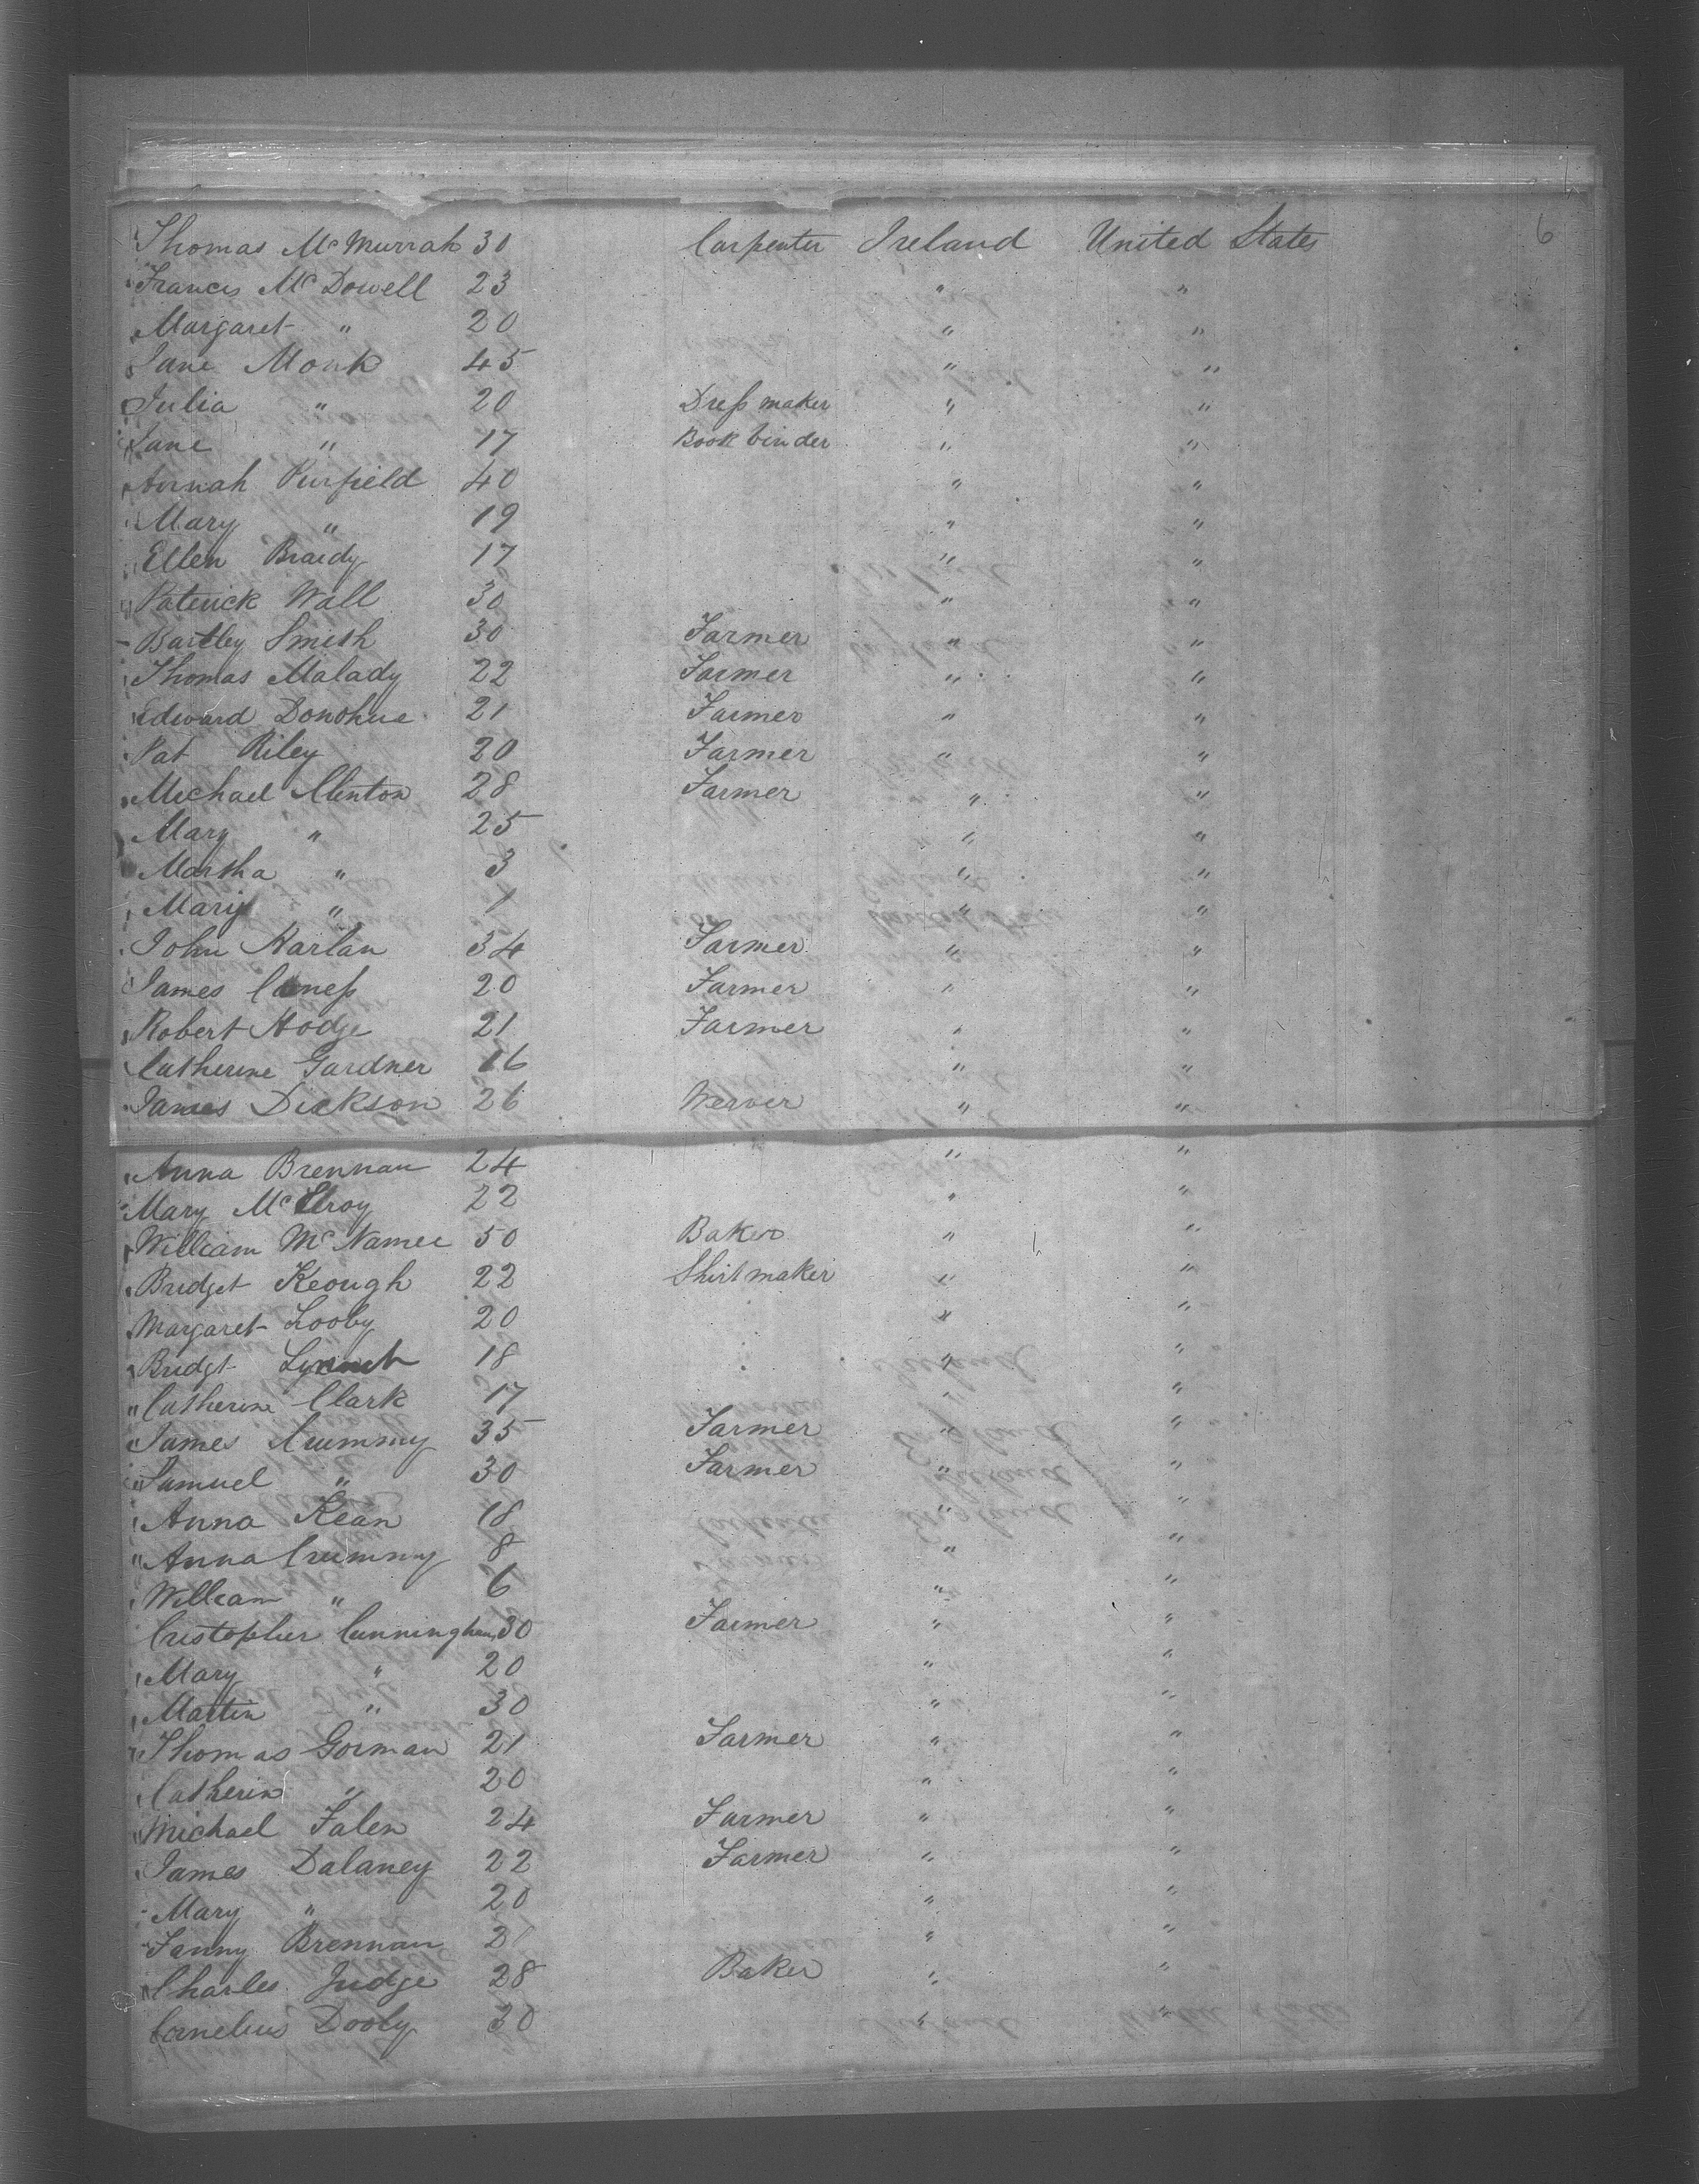 6
Thomas McMurrah 30 Carpenter Ireland United States
Francis McDowell 23 " "
Margaret " 20 " "
Jane Monk 45 " "
Julia " 20 Dress maker " "
Jane " 17 Book binder " "
Annah Purfield 40 " "
Mary " 19 " "
Ellen Braidy 17 " "
Paterick Wall 30 " "
Bartley Smith 30 Farmer " "
Thomas Malady 22 Farmer " "
Edward Donohue 21 Farmer " "
Pat Riley 20 Farmer " "
Michael Clinton 28 Farmer " "
Mary " 25 " "
Martha " 3 " "
Mary " 1 " "
John Harlan 34 Farmer " "
James 20 Farmer " "
Robert Hodge 21 Farmer " "
Catherine Gardner 16 " "
James Dickson 26 Werver " "
Anna Brennan 24 " "
Mary McElroy 22 " "
William McNamee 50 Baker " "
Bridget Keough 22 Shirt maker " "
Margaret Looby 20 " "
Bridgt Lynch 18 " "
Catherine Clark 17 " "
James Crummy 35 Farmer " "
Samuel " 30 Farmer " "
Anna Kean 18 " "
Anna Crummy 8 " "
William " 6 " "
Cristopher Cunningham 30 Farmer " "
Mary " 20 " "
Martin " 30 " "
Thomas Gorman 21 Farmer " "
Catherin " 20 " "
Michael Falen 24 Farmer " "
James Dalaney 22 Farmer " "
Mary " 20 " "
Fanny Brennan 21 " "
Charles Judge 28 Baker " "
Cornelius Dooly 30 " "